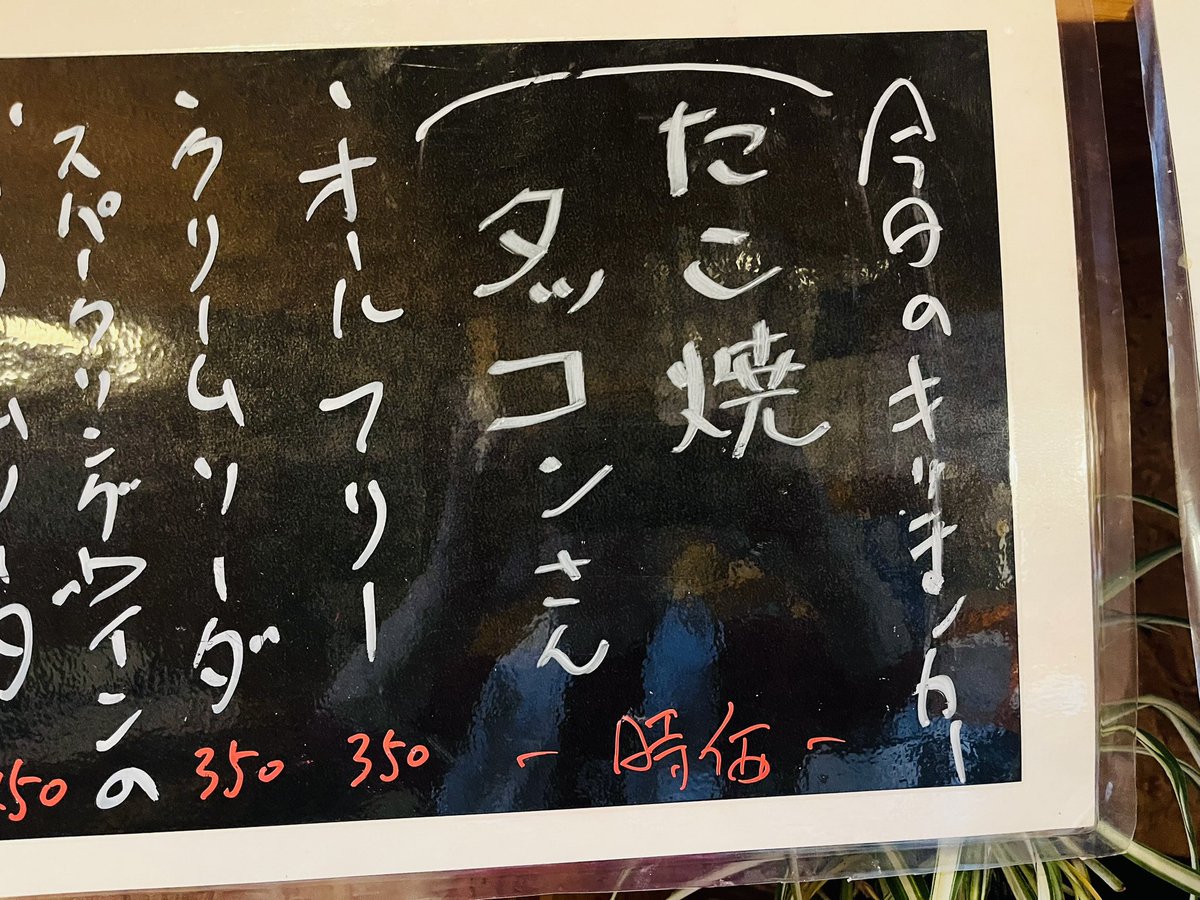 今日のキッチンカー
たこ焼
タッコンさん
-時価-
・オールフリー
350
・クリームソーダ
350
スパークリングワインの